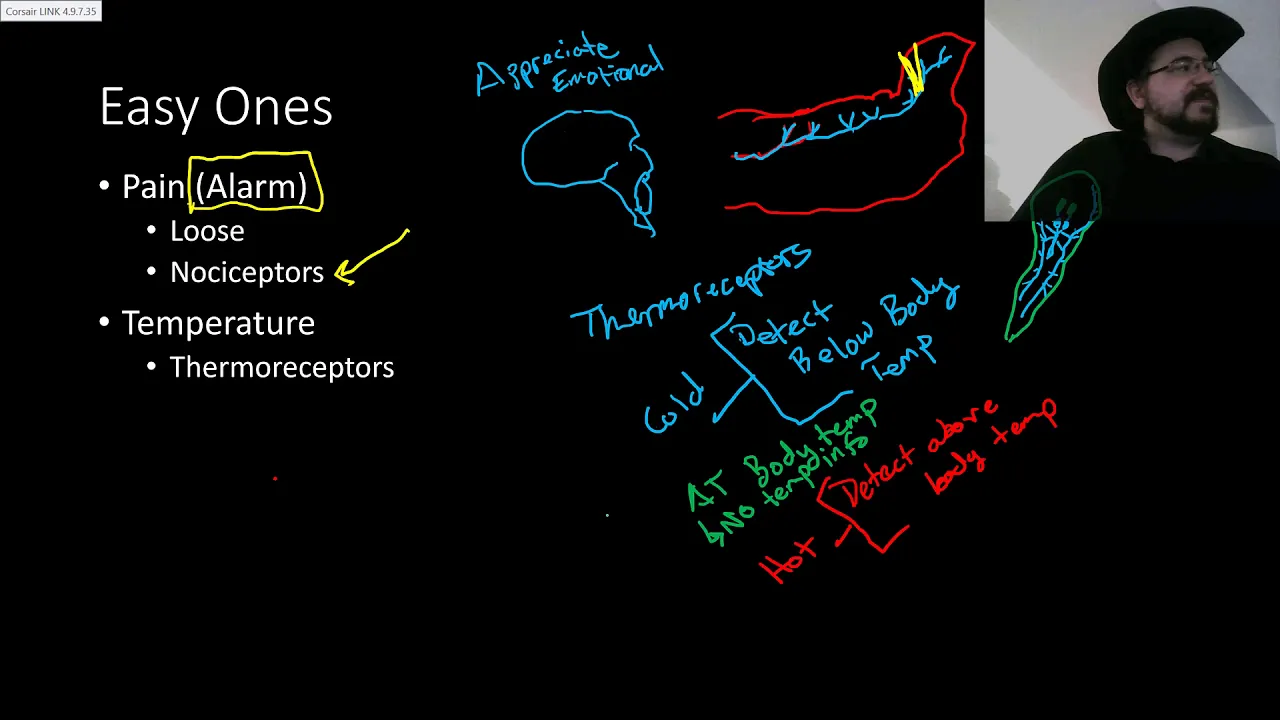 Corsair LINK 4.9.7.35
Easy Ones
• Pain (Alarm)
• Loose
• Nociceptors
• Temperature
• Thermoreceptors
Appreciate
Emotional
Thermoreceptors
Cold
Detect
Below Body
Temp
AT Body temp
↳No temp info
Hot
Detect above
body temp